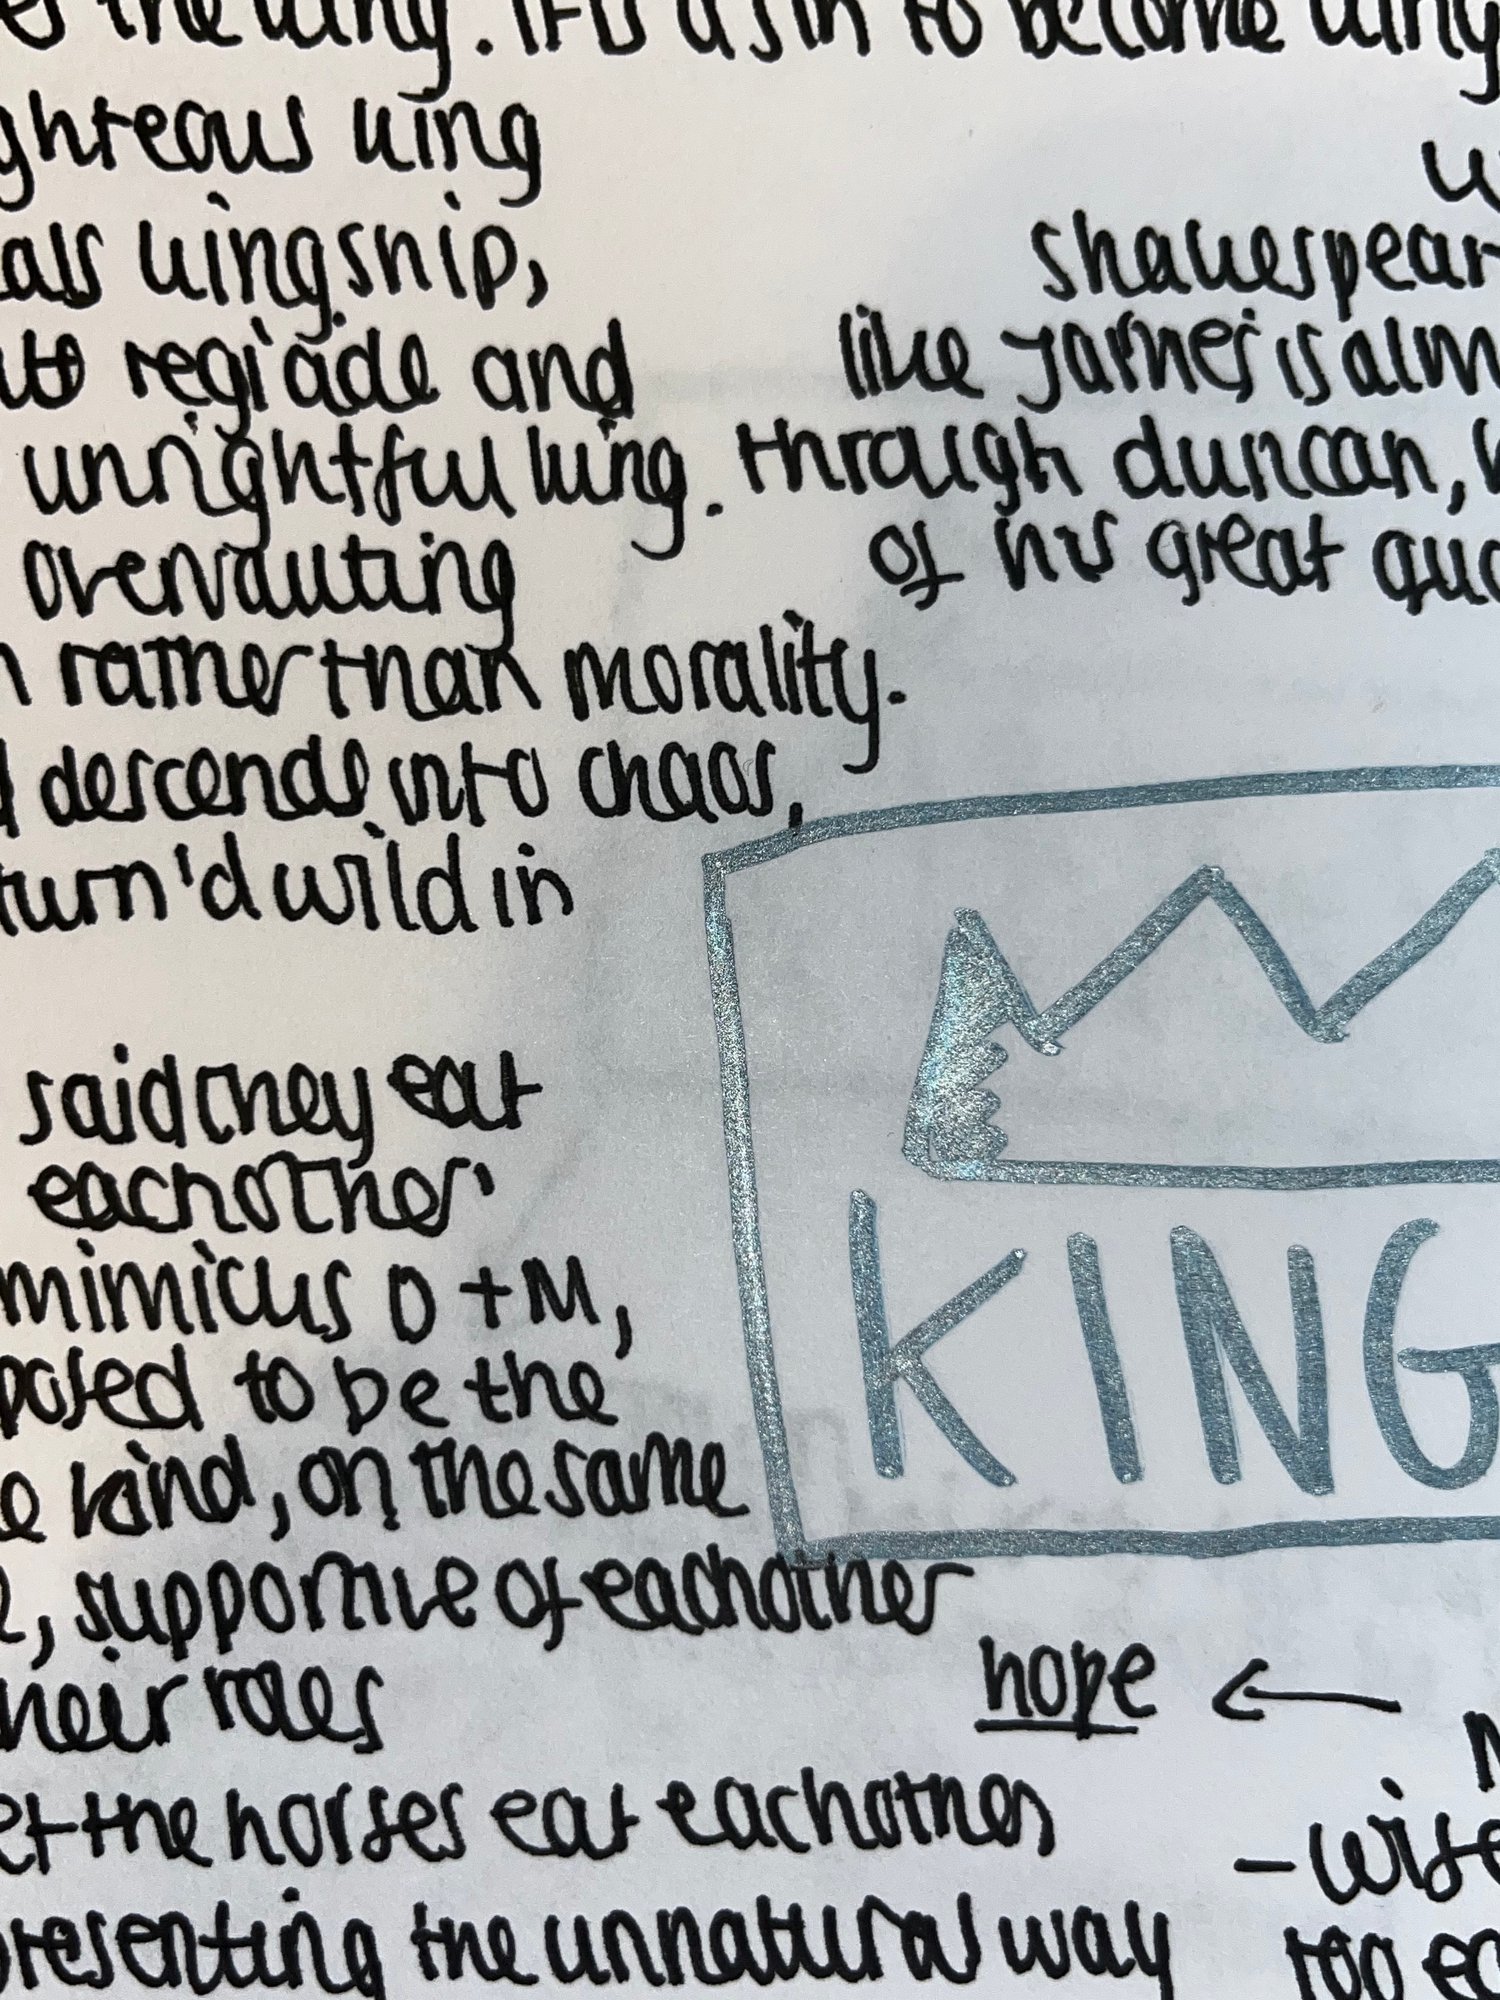 the king. It is a sin to become king
ghteous king
als kingship,
regicide and
unrightful king.
overvaulting
rather than morality.
descends into chaos,
turn'd wild in
said they eat
eachother'
mimicks D + M,
posed to be the
kind, on the same
, supportive of eachother
heir roles
the horses eat eachother
resenting the unnatural way
shakespear
like James is alm
through duncan,
of his great qua
KING
hope ←
- wise
too ea